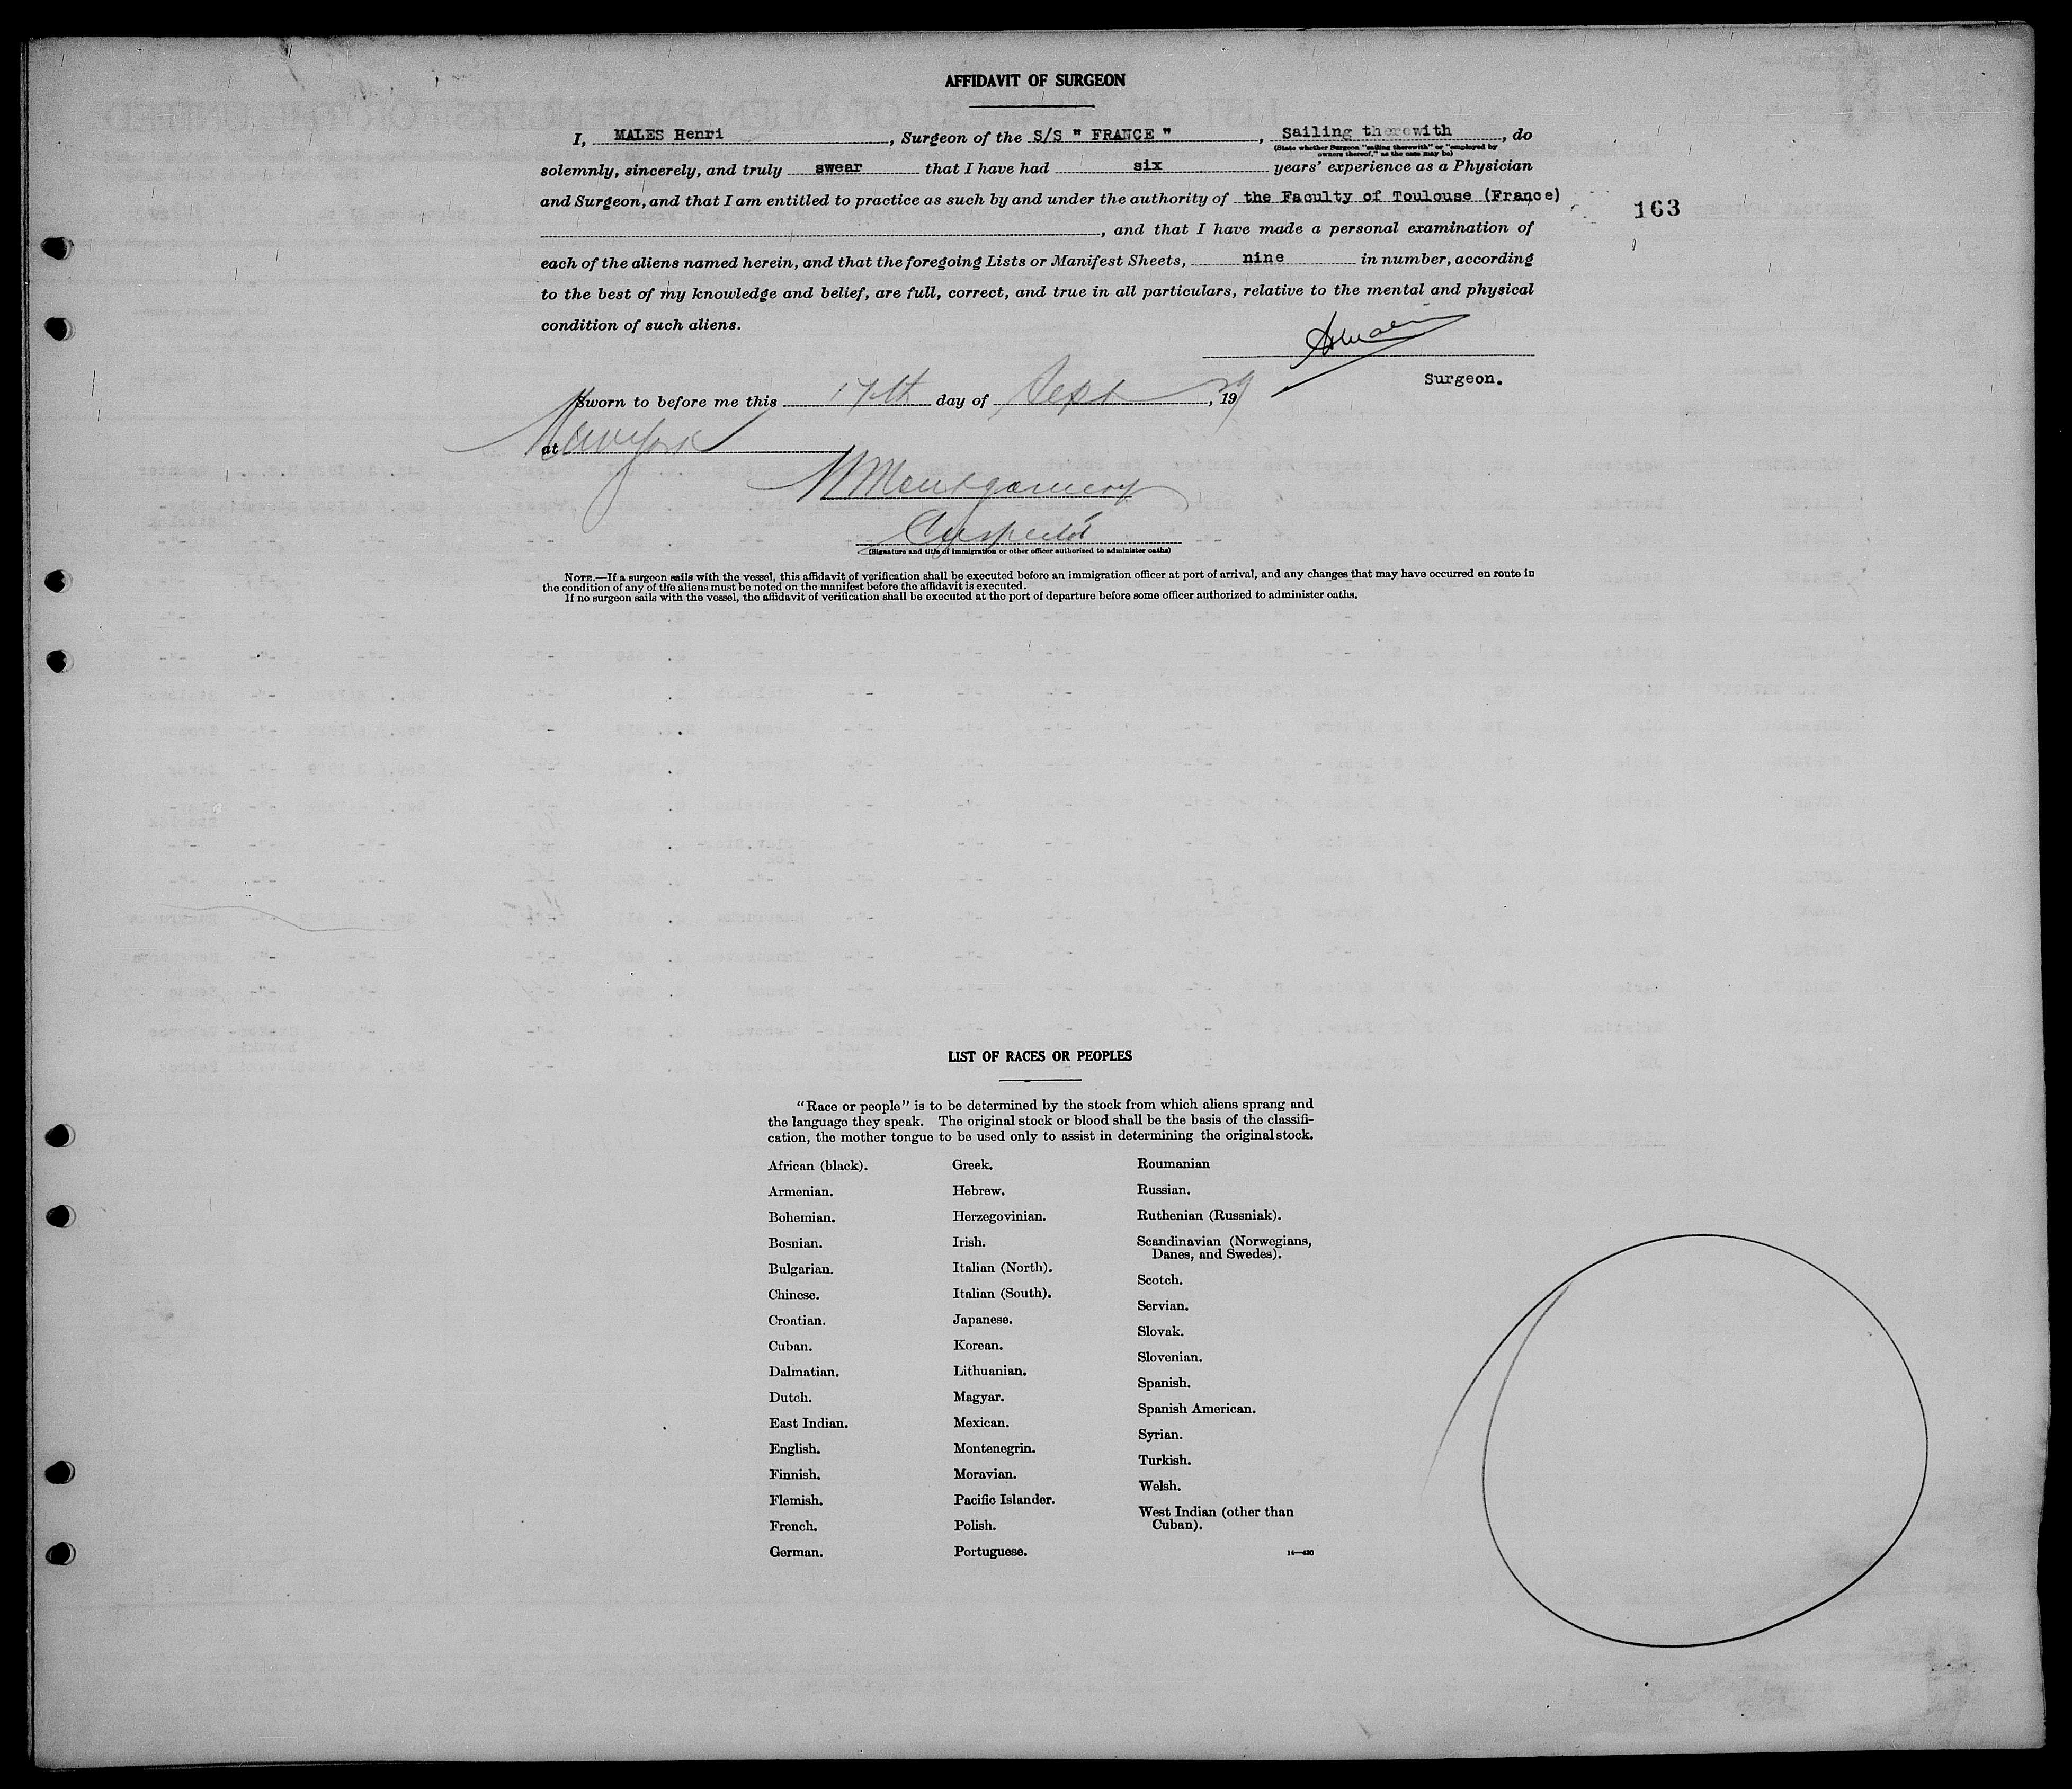 AFFIDAVIT OF SURGEON
I, MALES Henri, Surgeon of the S/S " FRANCE ", Sailing therewith, do
(State whether Surgeon "sailing therewith" or "employed by
owners thereof," as the case may be)
solemnly, sincerely, and truly swear that I have had six years' experience as a Physician
and Surgeon, and that I am entitled to practice as such by and under the authority of the Faculty of Toulouse (France)
163
, and that I have made a personal examination of
each of the aliens named herein, and that the foregoing Lists or Manifest Sheets, nine in number, according
to the best of my knowledge and belief, are full, correct, and true in all particulars, relative to the mental and physical
condition of such aliens.
Surgeon.
Sworn to before me this 17th day of Sept, 1929
at New York
Montgomery
Inspector
(Signature and title of immigration or other officer authorized to administer oaths)
NOTE.—If a surgeon sails with the vessel, this affidavit of verification shall be executed before an immigration officer at port of arrival, and any changes that may have occurred en route in
the condition of any of the aliens must be noted on the manifest before the affidavit is executed.
If no surgeon sails with the vessel, the affidavit of verification shall be executed at the port of departure before some officer authorized to administer oaths.
LIST OF RACES OR PEOPLES
"Race or people" is to be determined by the stock from which aliens sprang and
the language they speak. The original stock or blood shall be the basis of the classifi-
cation, the mother tongue to be used only to assist in determining the original stock.
African (black).
Armenian.
Bohemian.
Bosnian.
Bulgarian.
Chinese.
Croatian.
Cuban.
Dalmatian.
Dutch.
East Indian.
English.
Finnish.
Flemish.
French.
German.
Greek.
Hebrew.
Herzegovinian.
Irish.
Italian (North).
Italian (South).
Japanese.
Korean.
Lithuanian.
Magyar.
Mexican.
Montenegrin.
Moravian.
Pacific Islander.
Polish.
Portuguese.
Roumanian
Russian.
Ruthenian (Russniak).
Scandinavian (Norwegians,
Danes, and Swedes).
Scotch.
Servian.
Slovak.
Slovenian.
Spanish.
Spanish American.
Syrian.
Turkish.
Welsh.
West Indian (other than
Cuban).